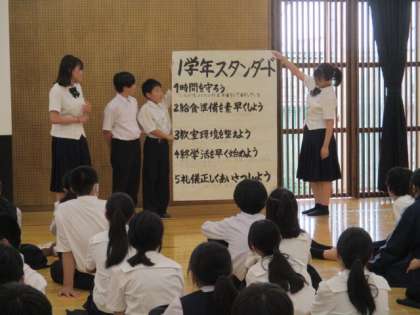 1学年スタンダード
1時間を守ろう
2給食準備を素早くしよう
3教室環境を整えよう
4終学活を早く始めよう
5礼儀正しくあいさつしよう